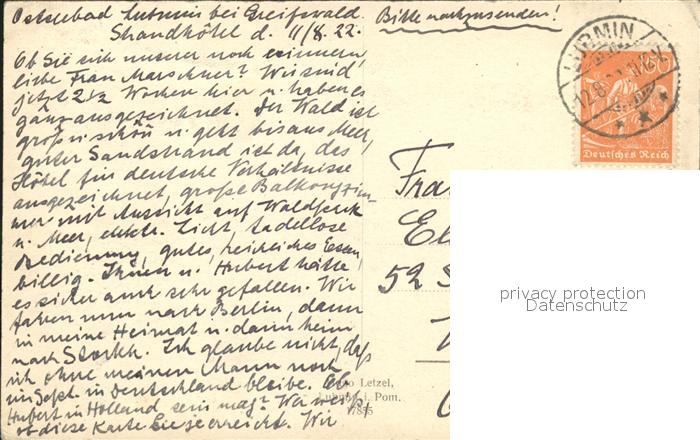 Ostseebad Lubmin bei Greifswald
Strandhôtel d. 11/8. 22.
Bitte nachzusenden!
Ob Sie sich unserer noch erinnern,
liebe Frau Marschner? Wir sind
jetzt 2 1/2 Wochen hier u. haben es
ganz ausgezeichnet. Der Wald ist
groß u. schön u. geht bis ans Meer,
guter Sandstrand ist da, das
Hôtel für deutsche Verhältnisse
ausgezeichnet, große Balkonzim-
mer mit Aussicht auf Waldpark
u. Meer, elektr. Licht, tadellose
Bedienung, gutes, reichliches Essen,
billig. Ihnen u. Hubert hätte
es sicher auch sehr gefallen. Wir
fahren nun nach Berlin, dann
in meine Heimat u. dann heim
nach Stockh. Ich glaube nicht, daß
ich ohne meinen Mann noch
im Sept. in Deutschland bleibe. Ob
Hubert in Holland sein mag? Wer weiß,
ob diese Karte Sie je erreicht. Wir
LUBMIN
12.8.
Deutsches Reich
Fra
El
52 S
Letzel,
Lubmin i. Pom.
17855
privacy protection
Datenschutz